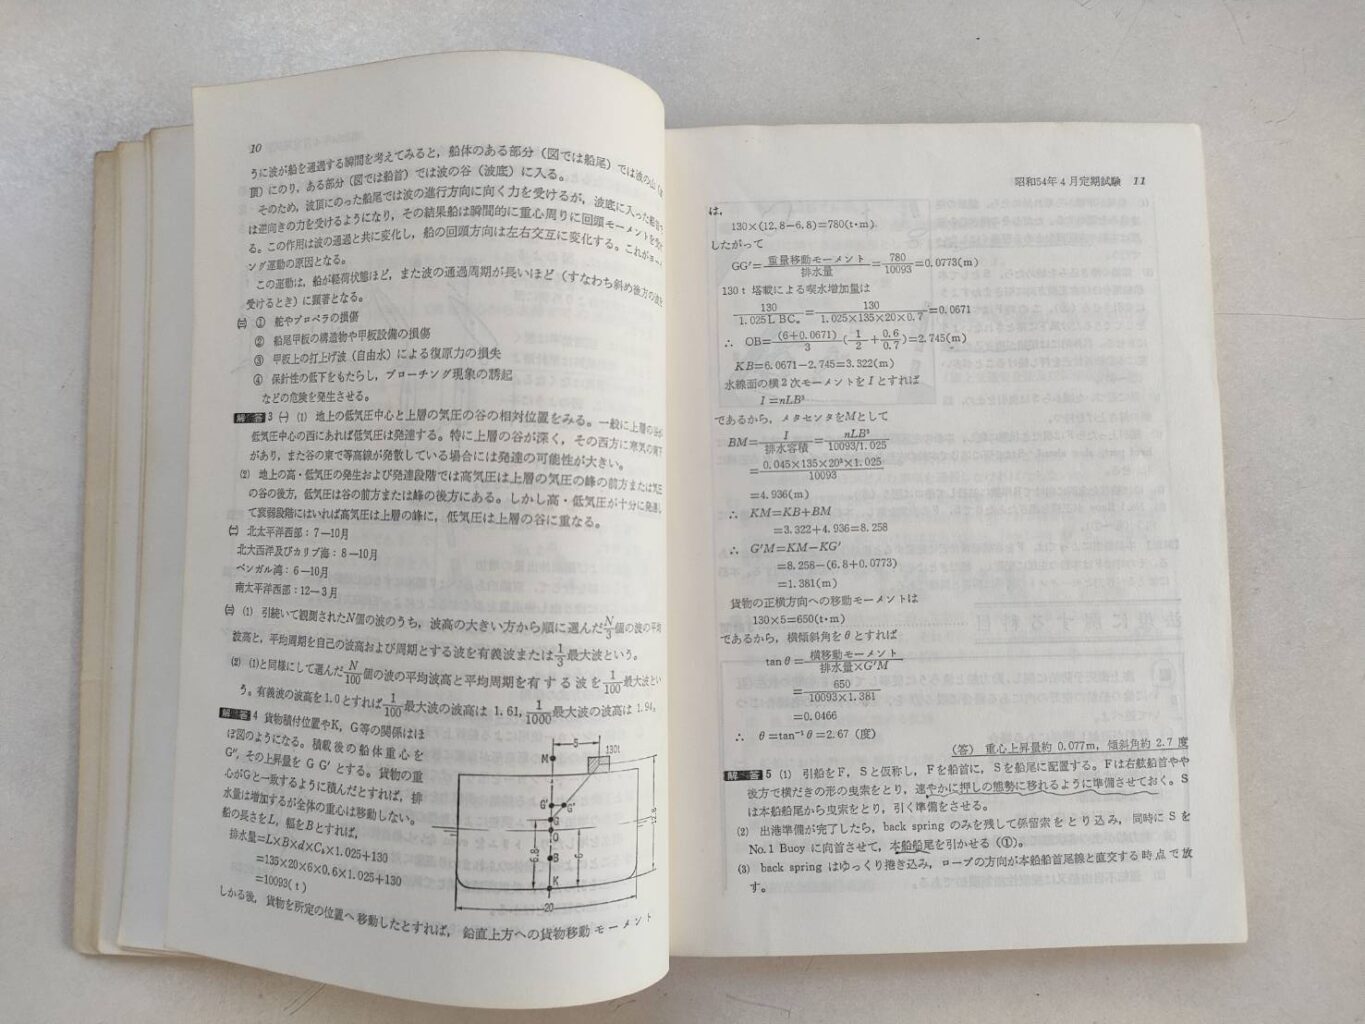 10
うに波が船を通過する瞬間を考えてみると，船体のある部分（図では船尾）では波の山（波
頂）にのり，ある部分（図では船首）では波の谷（波底）に入る。
そのため，波頂にのった船尾では波の進行方向に向く力を受けるが，波底に入った船首で
は逆向きの力を受けるようになり，その結果船は瞬間的に重心周りに回頭モーメントを受け
る。この作用は波の通過と共に変化し，船の回頭方向は左右交互に変化する。これがヨーイ
ング運動の原因となる。
この運動は，船が軽荷状態ほど，また波の通過周期が長いほど（すなわち斜め後方の波を
受けるとき）に顕著となる。
㈢ ① 舵やプロペラの損傷
② 船尾甲板の構造物や甲板設備の損傷
③ 甲板上の打上げ波（自由水）による復原力の損失
④ 保針性の低下をもたらし，ブローチング現象の誘起
などの危険を発生させる。
解答3 ㈠ (1) 地上の低気圧中心と上層の気圧の谷の相対位置をみる。一般に上層の谷が
低気圧中心の西にあれば低気圧は発達する。特に上層の谷が深く，その西方に寒気の南下
があり，また谷の東で等高線が発散している場合には発達の可能性が大きい。
(2) 地上の高・低気圧の発生および発達段階では高気圧は上層の気圧の峰の前方または気圧
の谷の後方，低気圧は谷の前方または峰の後方にある。しかし高・低気圧が十分に発達し
て衰弱段階にはいれば高気圧は上層の峰に，低気圧は上層の谷に重なる。
㈡ 北太平洋西部：7—10月
北大西洋及びカリブ海：8—10月
ベンガル湾：6—10月
南太平洋西部：12—3月
㈢ (1) 引続いて観測されたN個の波のうち，波高の大きい方から順に選んだN/3個の波の平均
波高と，平均周期を自己の波高および周期とする波を有義波または1/3最大波という。
(2) (1)と同様にして選んだN/100個の波の平均波高と平均周期を有する波を1/100最大波とい
う。有義波の波高を1.0とすれば1/100最大波の波高は 1.61，1/1000最大波の波高は 1.94。
解答4 貨物積付位置やK，G等の関係はほ
ぼ図のようになる。積載後の船体重心を
G″，その上昇量をGG′とする。貨物の重
心がGと一致するように積んだとすれば，排
水量は増加するが全体の重心は移動しない。
船の長さをL，幅をBとすれば，
排水量=L×B×d×Cb×1.025+130
=135×20×6×0.6×1.025+130
=10093(t)
しかる後，貨物を所定の位置へ移動したとすれば，鉛直上方への貨物移動モーメント
5
130t
M
G′
G″
G
O
B
K
6.8
6
12.8
20
昭和54年4月定期試験 11
は，
130×(12.8−6.8)=780(t·m)
したがって
GG′=重量移動モーメント/排水量=780/10093=0.0773(m)
130t 塔載による喫水増加量は
130/1.025LBCw=130/1.025×135×20×0.7=0.0671
∴ OB=(6+0.0671)/3(1/2+0.6/0.7)=2.745(m)
KB=6.0671−2.745=3.322(m)
水線面の横2次モーメントをIとすれば
I=nLB³
であるから，メタセンタをMとして
BM=I/排水容積=nLB³/10093/1.025
=0.045×135×20³×1.025/10093
=4.936(m)
∴ KM=KB+BM
=3.322+4.936=8.258
∴ G′M=KM−KG′
=8.258−(6.8+0.0773)
=1.381(m)
貨物の正横方向への移動モーメントは
130×5=650(t·m)
であるから，横傾斜角をθとすれば
tanθ=横移動モーメント/排水量×G′M
=650/10093×1.381
=0.0466
∴ θ=tan⁻¹θ=2.67（度）
（答）重心上昇量約 0.077m，傾斜角約 2.7 度
解答5 (1) 引船をF，Sと仮称し，Fを船首に，Sを船尾に配置する。Fは右舷船首やや
後方で横だきの形の曳索をとり，速やかに押しの態勢に移れるように準備させておく。S
は本船船尾から曳索をとり，引く準備をさせる。
(2) 出港準備が完了したら，back spring のみを残して係留索をとり込み，同時にSを
No.1 Buoy に向首させて，本船船尾を引かせる（①）。
(3) back spring はゆっくり捲き込み，ロープの方向が本船船首尾線と直交する時点で放
す。